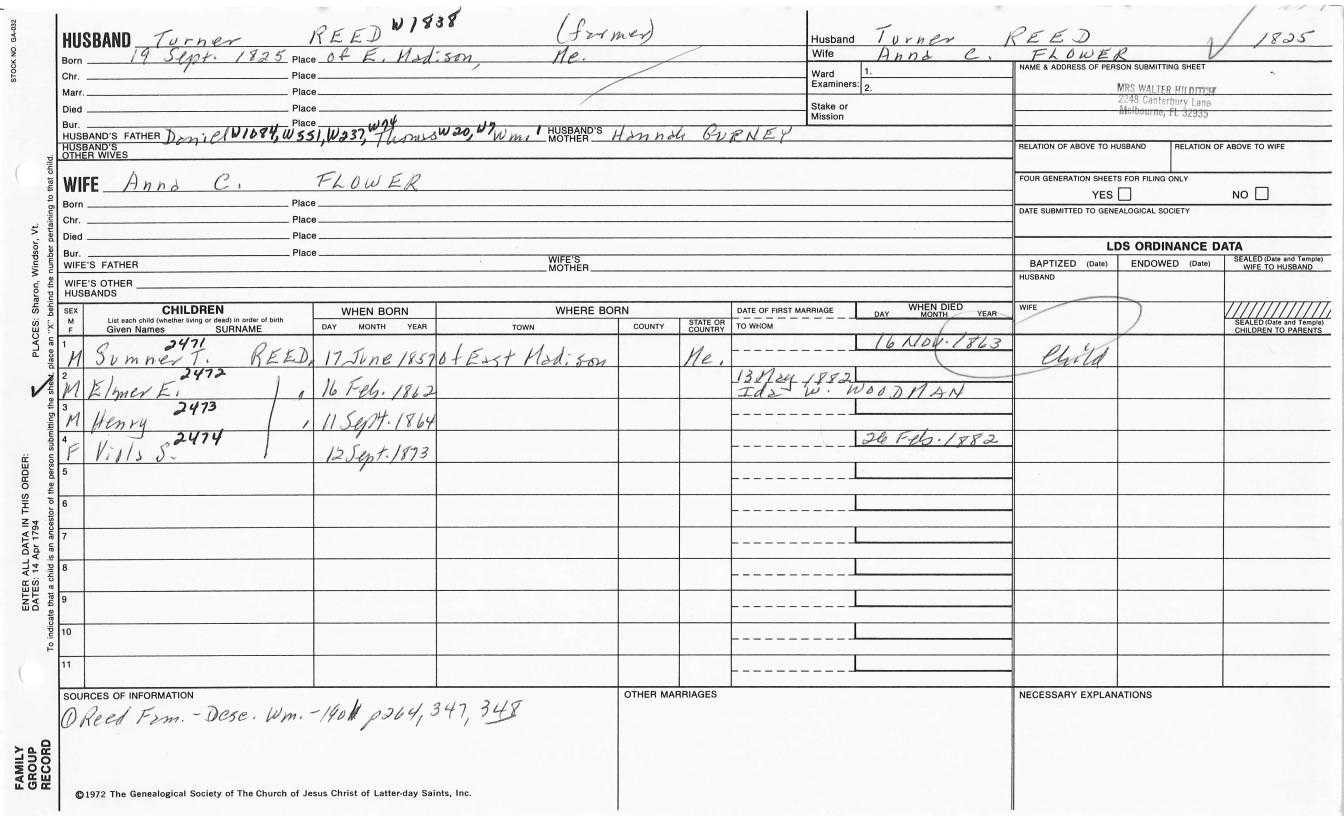 STOCK NO. GA-032
HUSBAND Turner REED W1838 (farmer)
Born 19 Sept. 1825 Place of E. Madison, Me.
Chr. Place
Marr. Place
Died Place
Bur. Place
HUSBAND'S FATHER Daniel W1084, W551, W237, W74 Thomas W20, W7 Wm. 1 HUSBAND'S MOTHER Hannah GURNEY
HUSBAND'S OTHER WIVES
WIFE Anna C. FLOWER
Born Place
Chr. Place
Died Place
Bur. Place
WIFE'S FATHER WIFE'S MOTHER
WIFE'S OTHER HUSBANDS
Husband Turner REED 1825
Wife Anna C. FLOWER
Ward Examiners: 1.
2.
Stake or Mission
NAME & ADDRESS OF PERSON SUBMITTING SHEET
MRS WALTER HILDITCH
2248 Canterbury Lane
Melbourne, FL 32935
RELATION OF ABOVE TO HUSBAND RELATION OF ABOVE TO WIFE
FOUR GENERATION SHEETS FOR FILING ONLY
YES NO
DATE SUBMITTED TO GENEALOGICAL SOCIETY
LDS ORDINANCE DATA
BAPTIZED (Date) ENDOWED (Date) SEALED (Date and Temple) WIFE TO HUSBAND
HUSBAND
WIFE
SEALED (Date and Temple) CHILDREN TO PARENTS
SEX M F
CHILDREN
List each child (whether living or dead) in order of birth
Given Names SURNAME
WHEN BORN
DAY MONTH YEAR
WHERE BORN
TOWN COUNTY STATE OR COUNTRY
DATE OF FIRST MARRIAGE
TO WHOM
WHEN DIED
DAY MONTH YEAR
1 M Sumner T. 2471 REED, 17 June 1857 of East Madison Me. 16 Nov. 1863 Child
2 M Elmer E. 2472 " 16 Feb. 1862 13 May 1882
Ida W. WOODMAN
3 M Henry 2473 " 11 Sept. 1864
4 F Viola S. 2474 12 Sept. 1873 26 Feb. 1882
5
6
7
8
9
10
11
SOURCES OF INFORMATION
① Reed Fam. - Desc. Wm. - 1901 p264, 347, 348
OTHER MARRIAGES
NECESSARY EXPLANATIONS
©1972 The Genealogical Society of The Church of Jesus Christ of Latter-day Saints, Inc.
FAMILY GROUP RECORD
ENTER ALL DATA IN THIS ORDER:
DATES: 14 Apr 1794
PLACES: Sharon, Windsor, Vt.
To indicate that a child is an ancestor of the person submitting the sheet, place an "X" behind the number pertaining to that child.